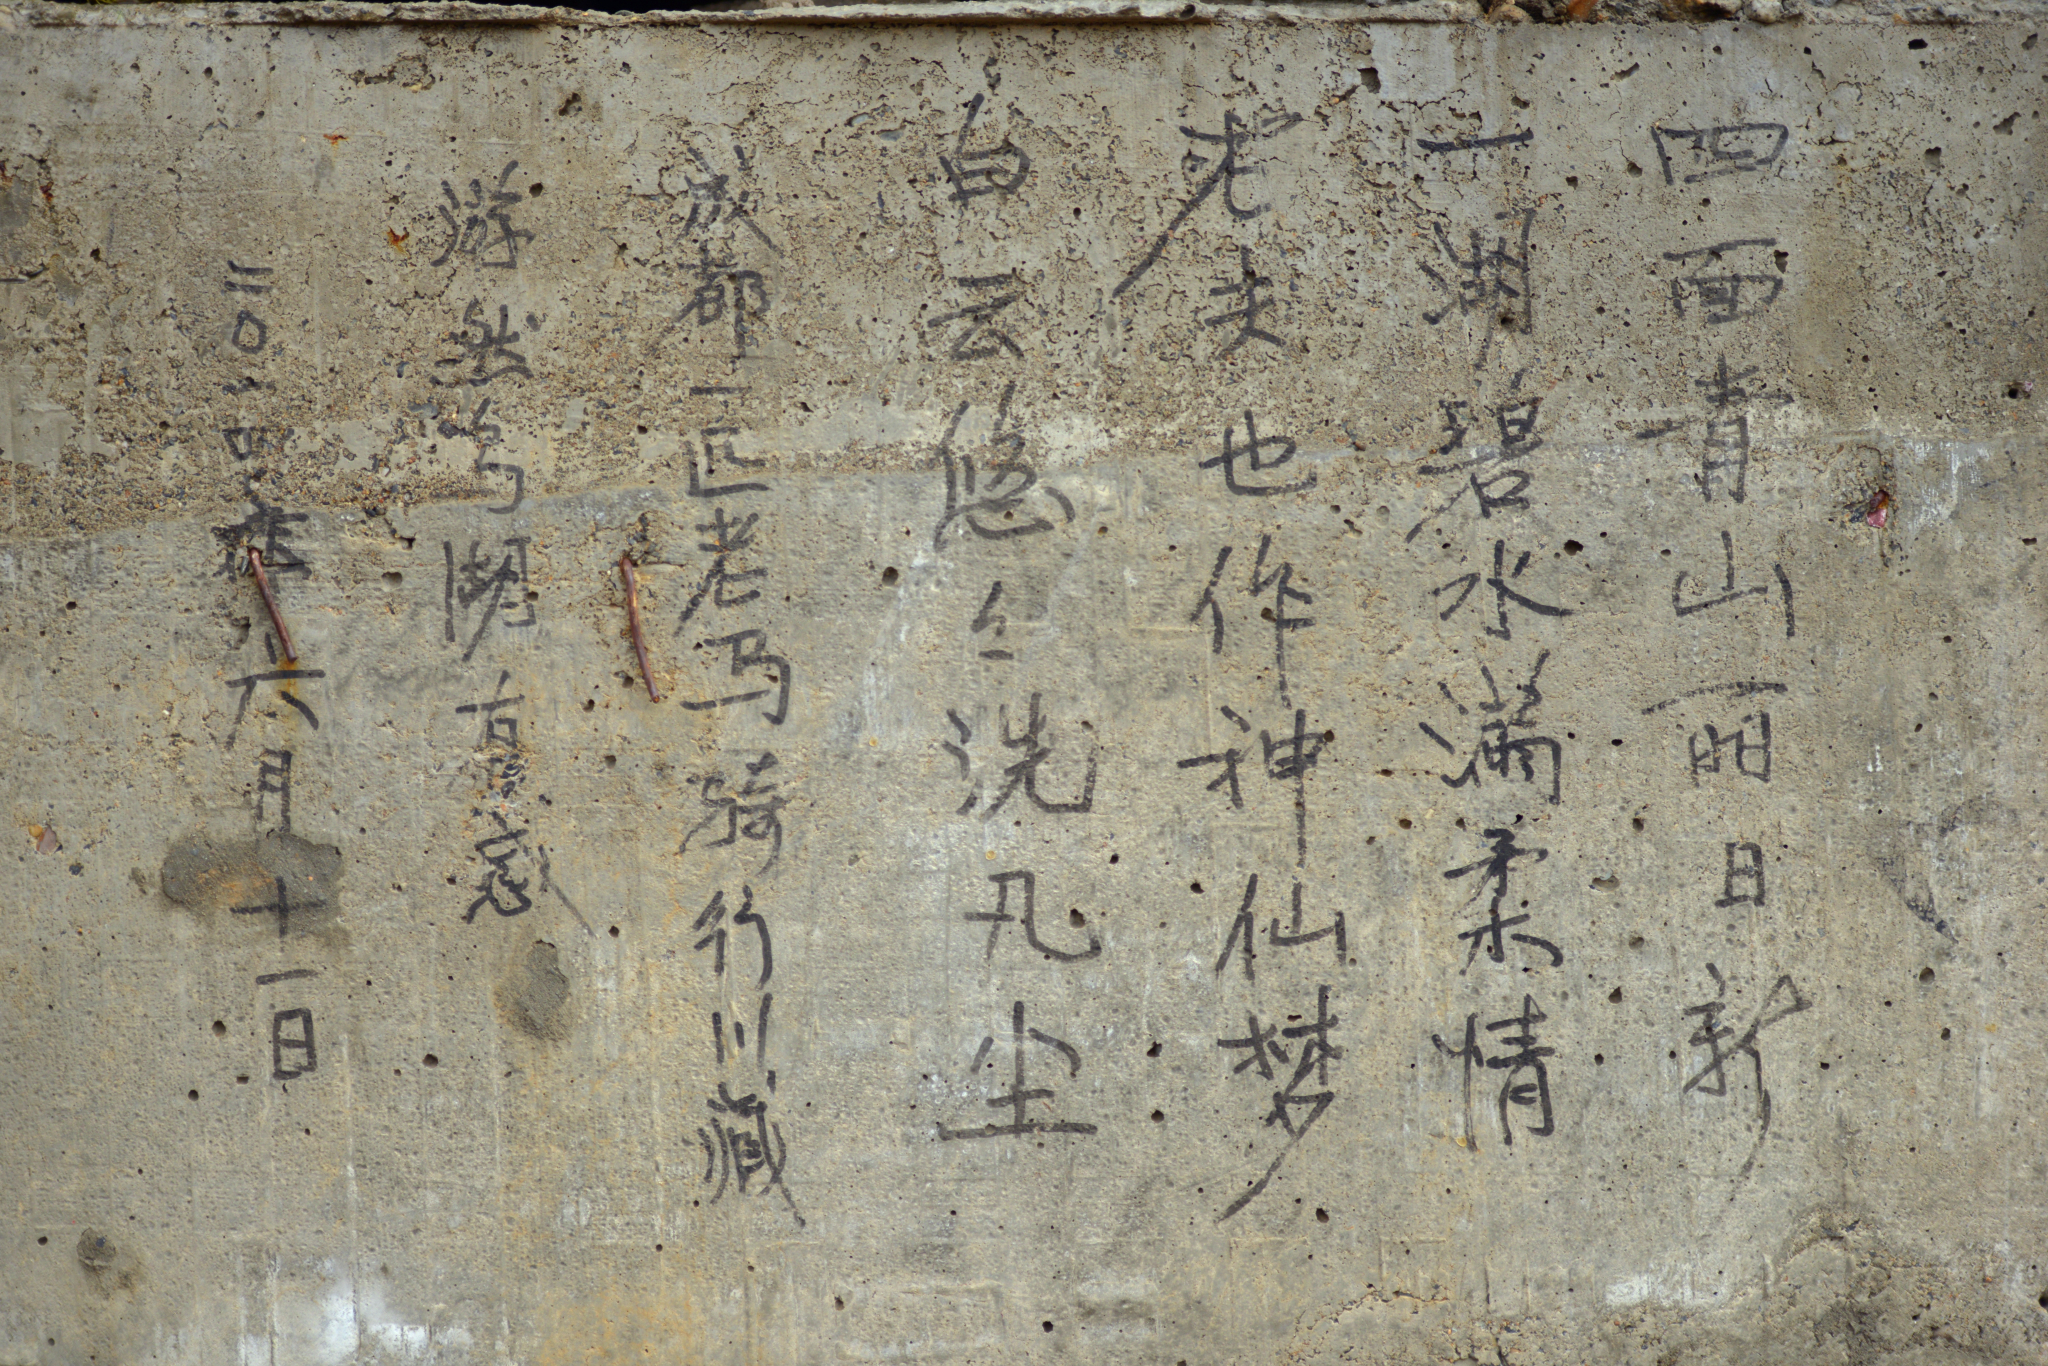 四面青山丽日新
一湖碧水满柔情
老夫也作神仙梦
白云悠々洗凡尘
成都一匹老马骑行川藏
游然乌湖有感
二〇一四年六月十一日